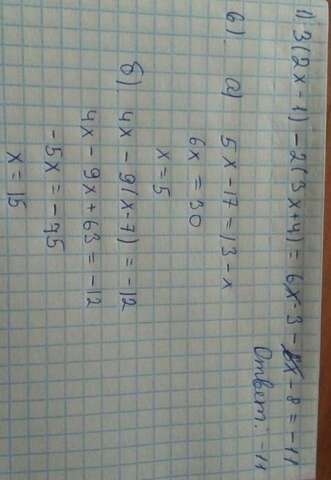 1) 3(2x-1)-2(3x+4)=6x-3-6x-8=-11
Ответ: -11
6). а) 5x-17=13-x
6x=30
x=5
б) 4x-9(x-7)=-12
4x-9x+63=-12
-5x=-75
x=15